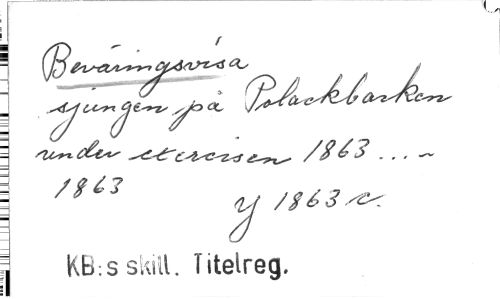 Beväringsvisa
sjungen på Polackbacken
under exercisen 1863 ... -
1863
Y 1863 c.
KB:s skill. Titelreg.